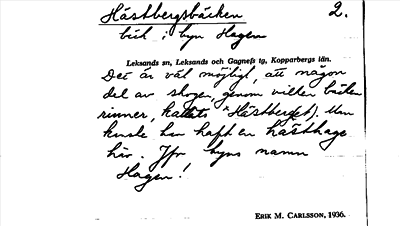 Hästbergsbäcken 2.
bäck i byn Hagen
Leksands sn, Leksands och Gagnefs tg, Kopparbergs län.
Det är väl möjligt, att någon
del av skogen, genom vilken bäcken
rinner, kallats *Hästberg(et). Man
kanske har haft en hästhage
här. Jfr byns namn
Hagen!
ERIK M. CARLSSON, 1936.